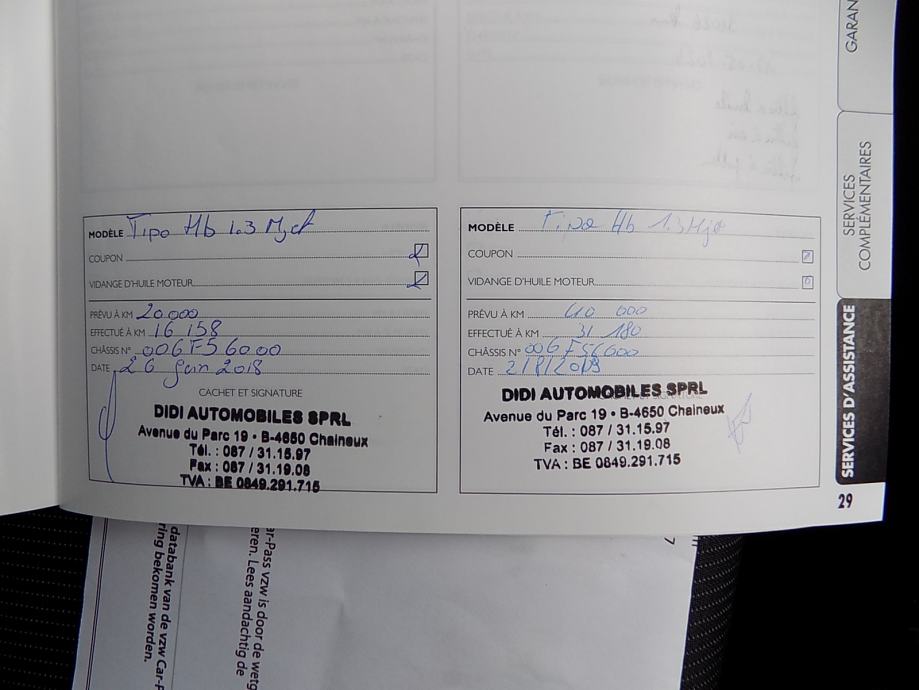 GARAN
SERVICES
COMPLÉMENTAIRES
SERVICES D'ASSISTANCE
29
MODÈLE Tipo Hb 1.3 Mjet
COUPON
VIDANGE D'HUILE MOTEUR
PRÉVU À KM 20.000
EFFECTUÉ À KM 16 158
CHÂSSIS N° 006F56000
DATE 26 juin 2018
CACHET ET SIGNATURE
DIDI AUTOMOBILES SPRL
Avenue du Parc 19 • B-4650 Chaineux
Tél. : 087 / 31.15.97
Fax : 087 / 31.19.08
TVA : BE 0849.291.715
MODÈLE Tipo Hb 1.3 Mjet
COUPON
VIDANGE D'HUILE MOTEUR
PRÉVU À KM 40 000
EFFECTUÉ À KM 31 180
CHÂSSIS N° 006F56000
DATE 2/8/2019
DIDI AUTOMOBILES SPRL
Avenue du Parc 19 • B-4650 Chaineux
Tél. : 087 / 31.15.97
Fax : 087 / 31.19.08
TVA : BE 0849.291.715
ar-Pass vzw is door de wetg
eren. Lees aandachtig de
databank van de vzw Car-P
ring bekomen worden.